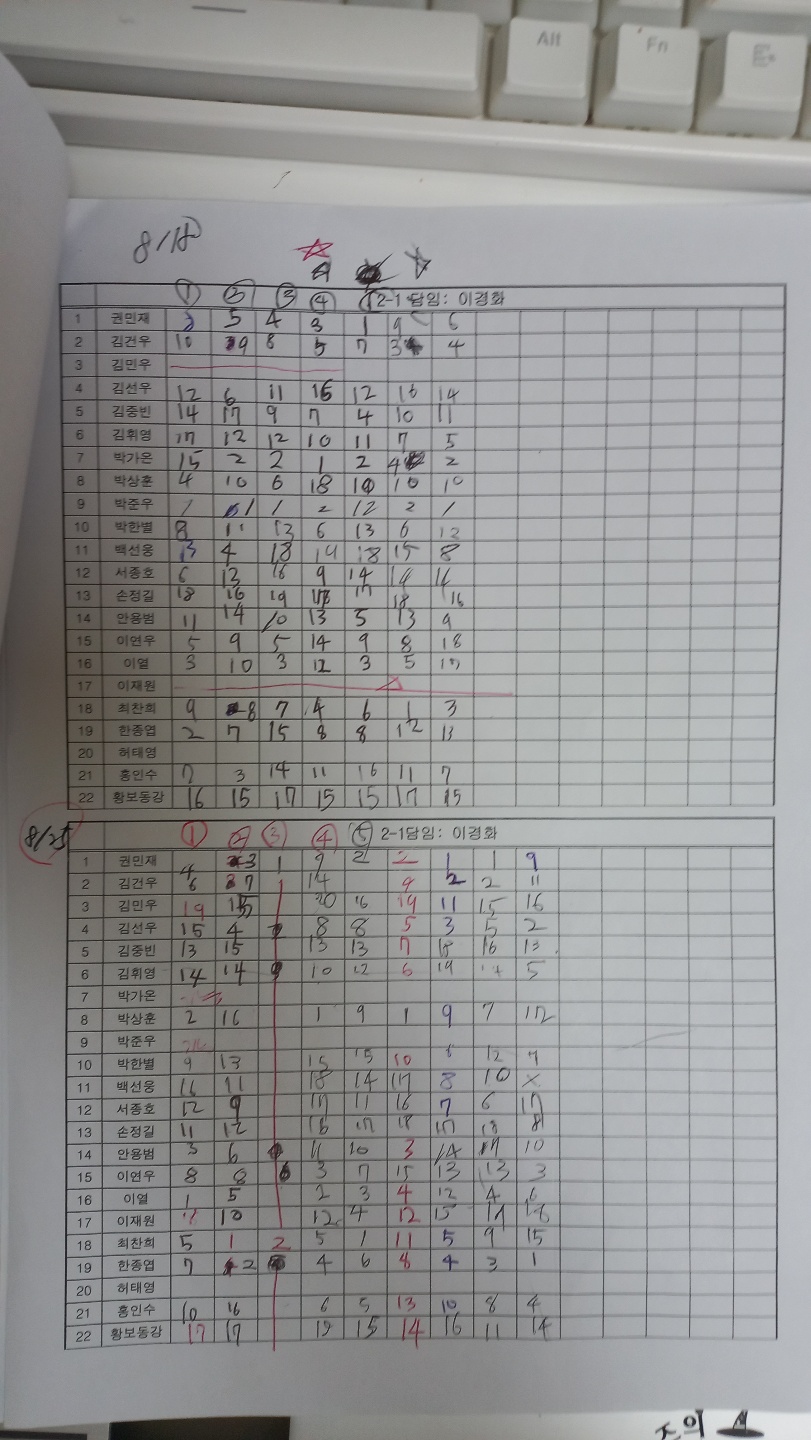 Alt Fn
8/18
① ② ③ ④ 2-1 담임: 이경화
1 권민재 5 4 3 1 9 6
2 김건우 10 9 8 5 7 3 4
3 김민우
4 김선우 12 6 11 16 12 16 14
5 김중빈 14 17 9 7 4 10 11
6 김휘영 17 12 12 10 11 7 5
7 박가온 15 2 2 1 2 4 2
8 박상훈 4 10 6 18 10 10 10
9 박준우 1 1 1 2 12 2 1
10 박한별 8 11 13 6 13 6 12
11 백선웅 13 4 18 19 18 15 8
12 서종호 6 13 16 9 14 14
13 손정길 18 16 19 17 18 16
14 안용범 11 14 10 13 5 13 9
15 이연우 5 9 5 14 9 8 18
16 이열 3 10 3 12 3 5 17
17 이재원
18 최찬희 9 8 7 4 6 1 3
19 한종엽 2 7 15 8 8 12 13
20 허태영
21 홍인수 7 3 14 11 16 11 7
22 황보동강 16 15 17 15 15 17 15
8/25
① ② ③ ④ ⑤ 2-1담임: 이경화
1 권민재 4 3 1 9 2 2 1 1 9
2 김건우 6 7 14 9 2 2 11
3 김민우 19 15 20 16 19 11 15 16
4 김선우 15 4 8 8 5 3 5 2
5 김중빈 13 15 13 13 7 18 16 13
6 김휘영 14 14 10 12 6 19 14 5
7 박가온
8 박상훈 2 16 1 9 1 9 7 12
9 박준우
10 박한별 9 13 15 15 10 6 12 7
11 백선웅 16 11 18 14 17 8 10 x
12 서종호 12 9 17 11 16 7 6 17
13 손정길 11 12 16 17 18 17 18 8
14 안용범 3 6 11 10 3 14 17 10
15 이연우 8 8 6 3 7 15 13 13 3
16 이열 1 5 2 3 4 12 4 6
17 이재원 10 12 4 12 15 14 18
18 최찬희 5 1 2 5 1 11 5 9 15
19 한종엽 7 2 4 6 8 4 3 1
20 허태영
21 홍인수 10 16 6 5 13 10 8 4
22 황보동강 17 17 19 15 14 16 11 14